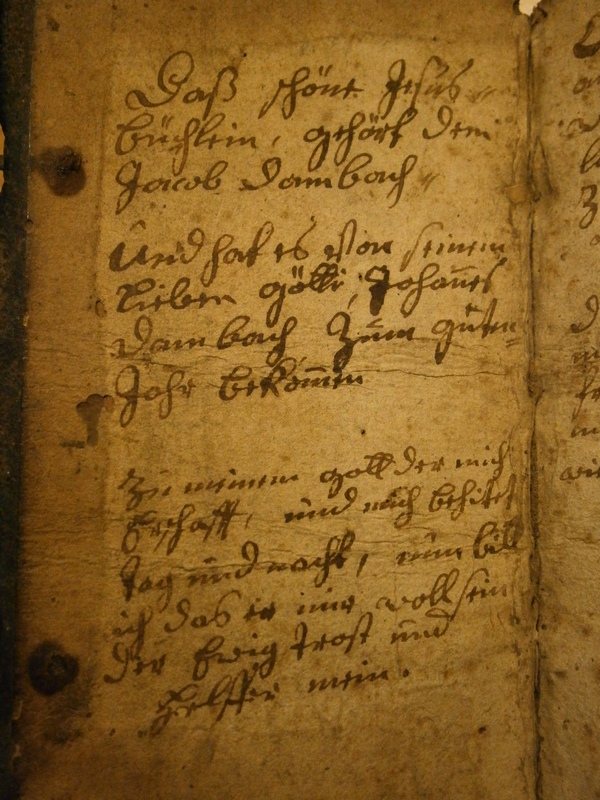 Daß schöne Jesus-
büchlein, gehört dem
Jacob Dambach
Und hat es Von seinem
lieben götti, Johañes
Dambach Zum guten
Jahr bekom̃en
Zu meinem gott der mich
Erschaff, und mich behütet
tag und nacht, nun bitt
ich das er mir woll sein
der Ewig trost und
Helffer mein.